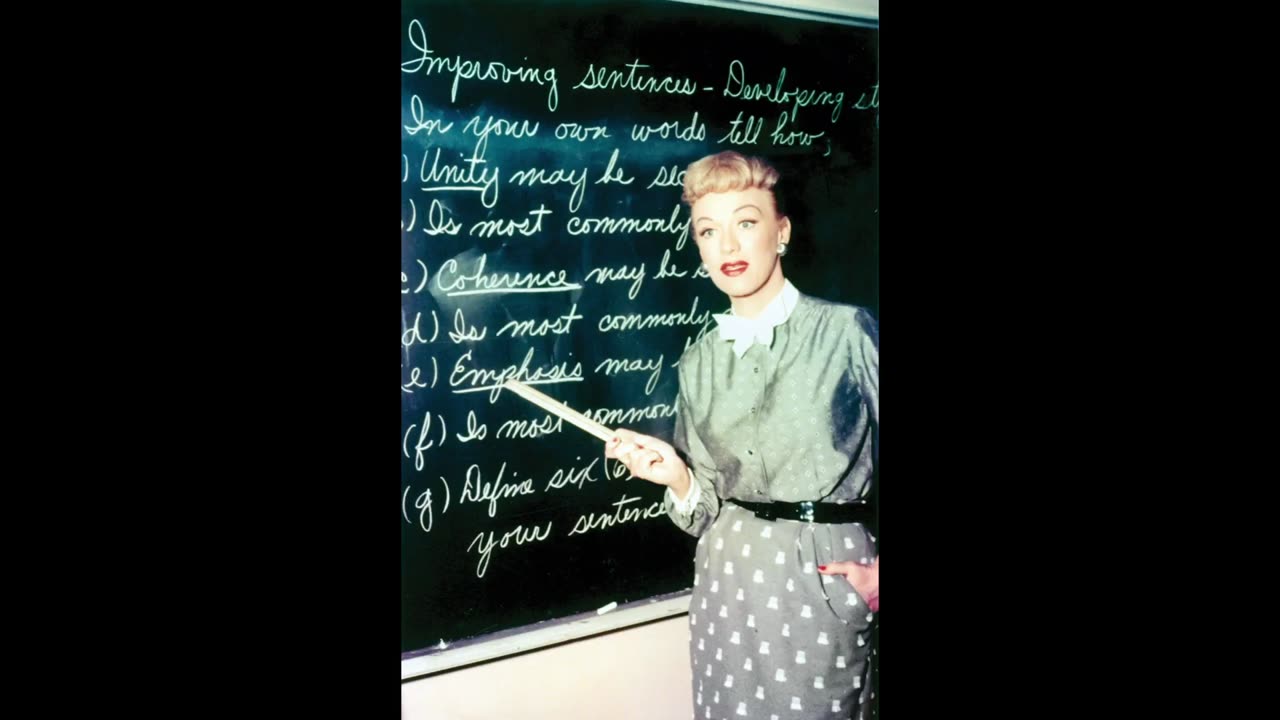 Improving sentences - Developing
In your own words tell how,
) Unity may be
) Is most commonly
c) Coherence may be
d) Is most commonly
(e) Emphasis may
(f) Is most common
(g) Define six (6)
your sentence